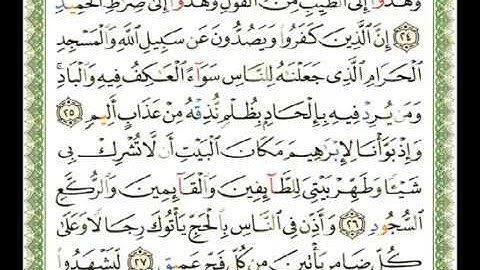 وَهُدُوٓا۟ إِلَى ٱلطَّيِّبِ مِنَ ٱلْقَوْلِ وَهُدُوٓا۟ إِلَىٰ صِرَٰطِ ٱلْحَمِيدِ
٢٤ إِنَّ ٱلَّذِينَ كَفَرُوا۟ وَيَصُدُّونَ عَن سَبِيلِ ٱللَّهِ وَٱلْمَسْجِدِ
ٱلْحَرَامِ ٱلَّذِى جَعَلْنَٰهُ لِلنَّاسِ سَوَآءً ٱلْعَٰكِفُ فِيهِ وَٱلْبَادِ ۚ
وَمَن يُرِدْ فِيهِ بِإِلْحَادٍۭ بِظُلْمٍ نُّذِقْهُ مِنْ عَذَابٍ أَلِيمٍ ٢٥
وَإِذْ بَوَّأْنَا لِإِبْرَٰهِيمَ مَكَانَ ٱلْبَيْتِ أَن لَّا تُشْرِكْ بِى
شَيْـًٔا وَطَهِّرْ بَيْتِىَ لِلطَّآئِفِينَ وَٱلْقَآئِمِينَ وَٱلرُّكَّعِ
ٱلسُّجُودِ ٢٦ وَأَذِّن فِى ٱلنَّاسِ بِٱلْحَجِّ يَأْتُوكَ رِجَالًا وَعَلَىٰ
كُلِّ ضَامِرٍ يَأْتِينَ مِن كُلِّ فَجٍّ عَمِيقٍ ٢٧ لِّيَشْهَدُوا۟